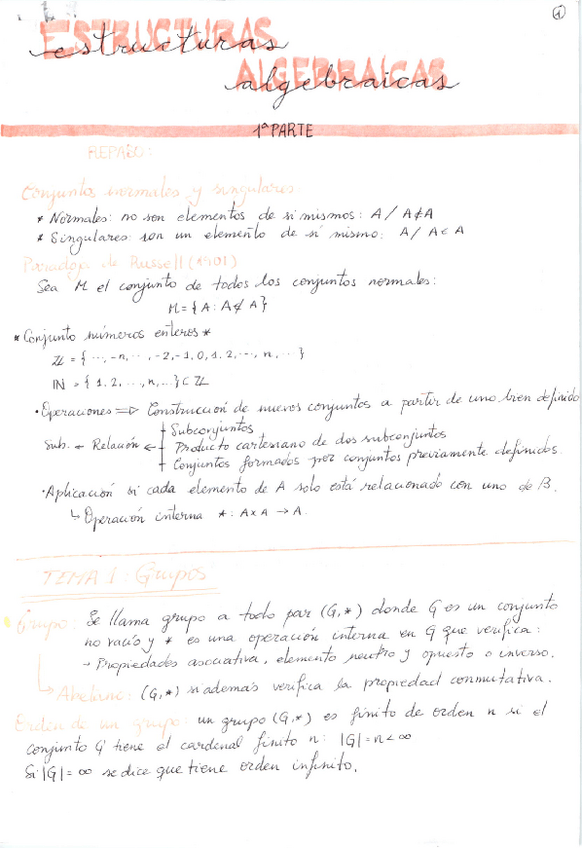 1
ESTRUCTURAS
estructuras
ALGEBRAICAS
algebraicas
1ª PARTE
REPASO:
Conjuntos normales y singulares
* Normales: no son elementos de sí mismos: A / A∉A
* Singulares: son un elemento de sí mismo: A / A∈A
Paradoja de Russell (1901)
Sea M el conjunto de todos los conjuntos normales:
M = { A : A∉A }
* Conjunto números enteros *
ℤ = { ..., -n, ..., -2, -1, 0, 1, 2, ..., n, ... }
ℕ = { 1, 2, ..., n, ... } ⊂ ℤ
· Operaciones ⇒ Construcción de nuevos conjuntos a partir de uno bien definido
Subconjuntos
Sub. ← Relación ← Producto cartesiano de dos subconjuntos
Conjuntos formados por conjuntos previamente definidos.
· Aplicación si cada elemento de A solo está relacionado con uno de B.
↳ Operación interna * : A x A → A.
TEMA 1: Grupos
Grupo: Se llama grupo a todo par (G,*) donde G es un conjunto
no vacío y * es una operación interna en G que verifica:
→ Propiedades asociativa, elemento neutro y opuesto o inverso.
↳ Abeliano: (G,*) si además verifica la propiedad conmutativa.
Orden de un grupo: un grupo (G,*) es finito de orden n si el
conjunto G tiene el cardenal finito n: |G| = n < ∞
Si |G| = ∞ se dice que tiene orden infinito.